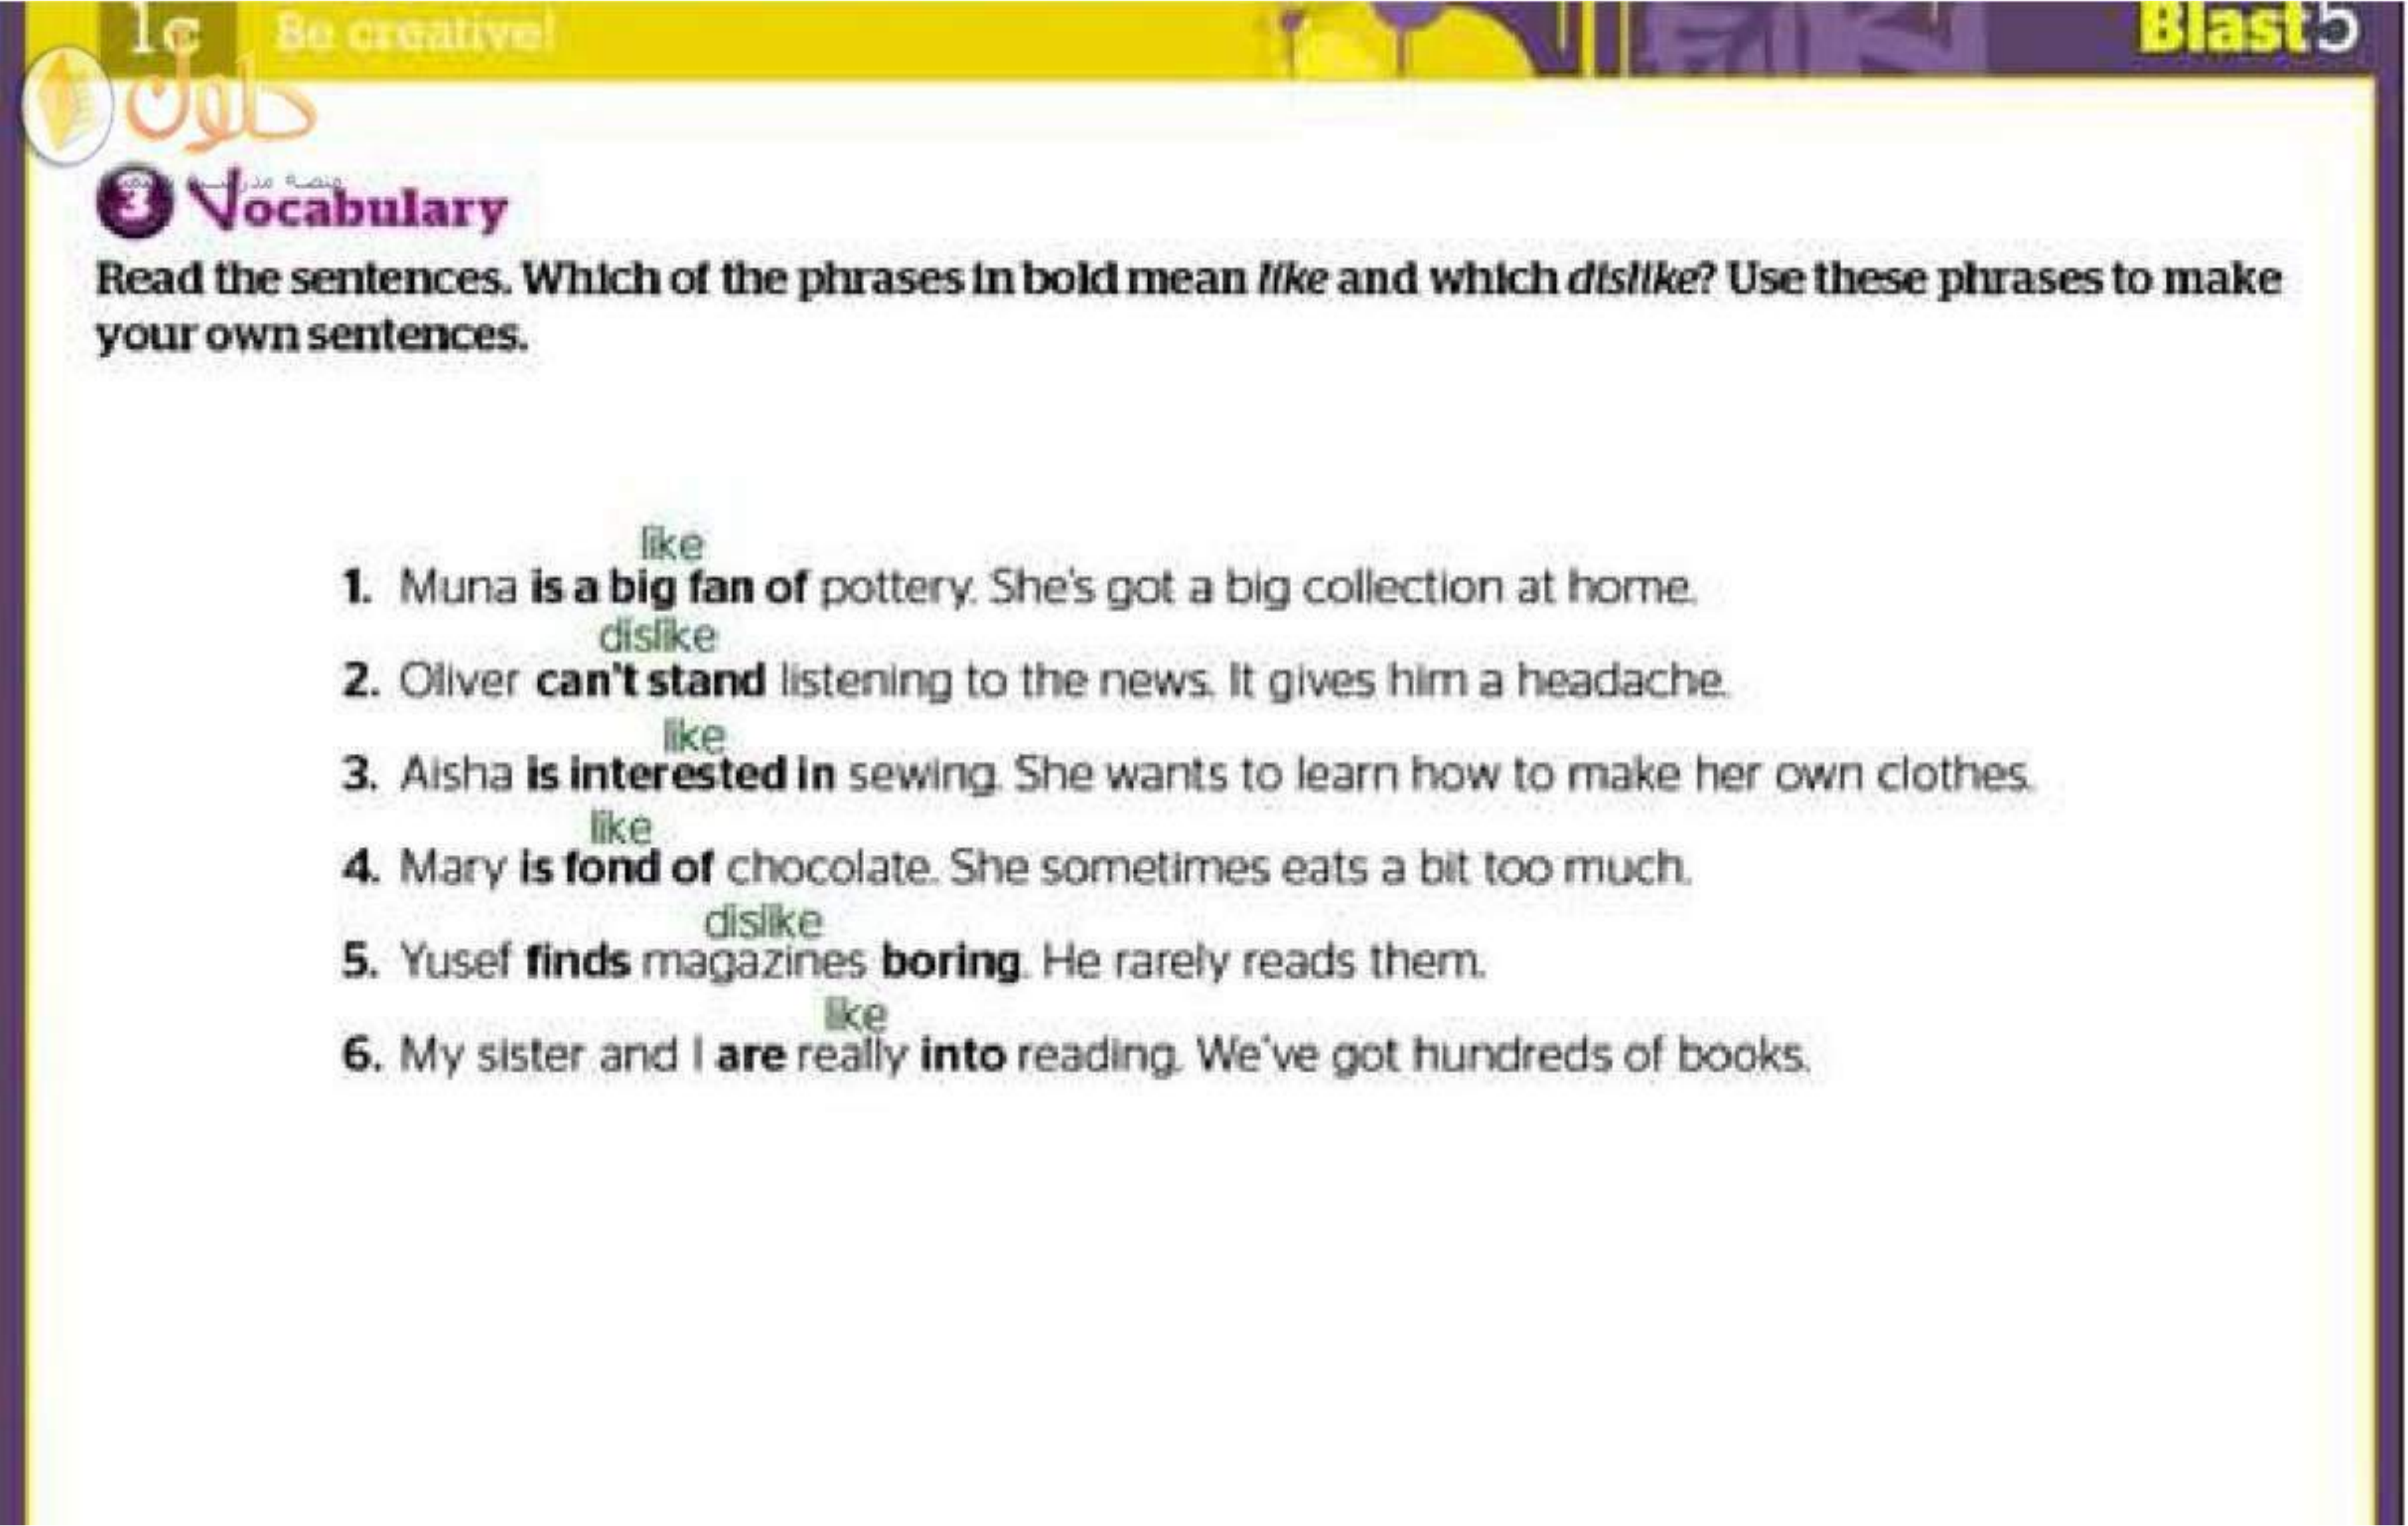 1c Be creative!
Blast5
حلول
3 Vocabulary
Read the sentences. Which of the phrases in bold mean like and which dislike? Use these phrases to make
your own sentences.
like
1. Muna is a big fan of pottery. She's got a big collection at home.
dislike
2. Oliver can't stand listening to the news. It gives him a headache.
like
3. Aisha is interested in sewing. She wants to learn how to make her own clothes.
like
4. Mary is fond of chocolate. She sometimes eats a bit too much.
dislike
5. Yusef finds magazines boring. He rarely reads them.
like
6. My sister and I are really into reading. We've got hundreds of books.